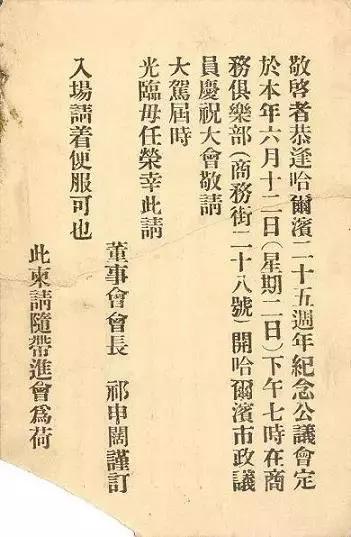 敬啓者恭逢哈爾濱二十五週年紀念公議會定
於本年六月十二日(星期二日)下午七時在商
務俱樂部(商務街二十八號)開哈爾濱市政議
員慶祝大會敬請
大駕屆時
光臨毋任榮幸此請
董事會會長 祁申闊謹訂
入場請着便服可也
此柬請隨帶進會爲荷